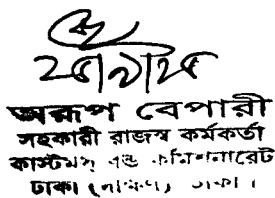 অরূপ বেপারী
সহকারী রাজস্ব কর্মকর্তা
কাস্টমস এন্ড কমিশনারেট
ঢাকা (দক্ষিণ) ঢাকা।